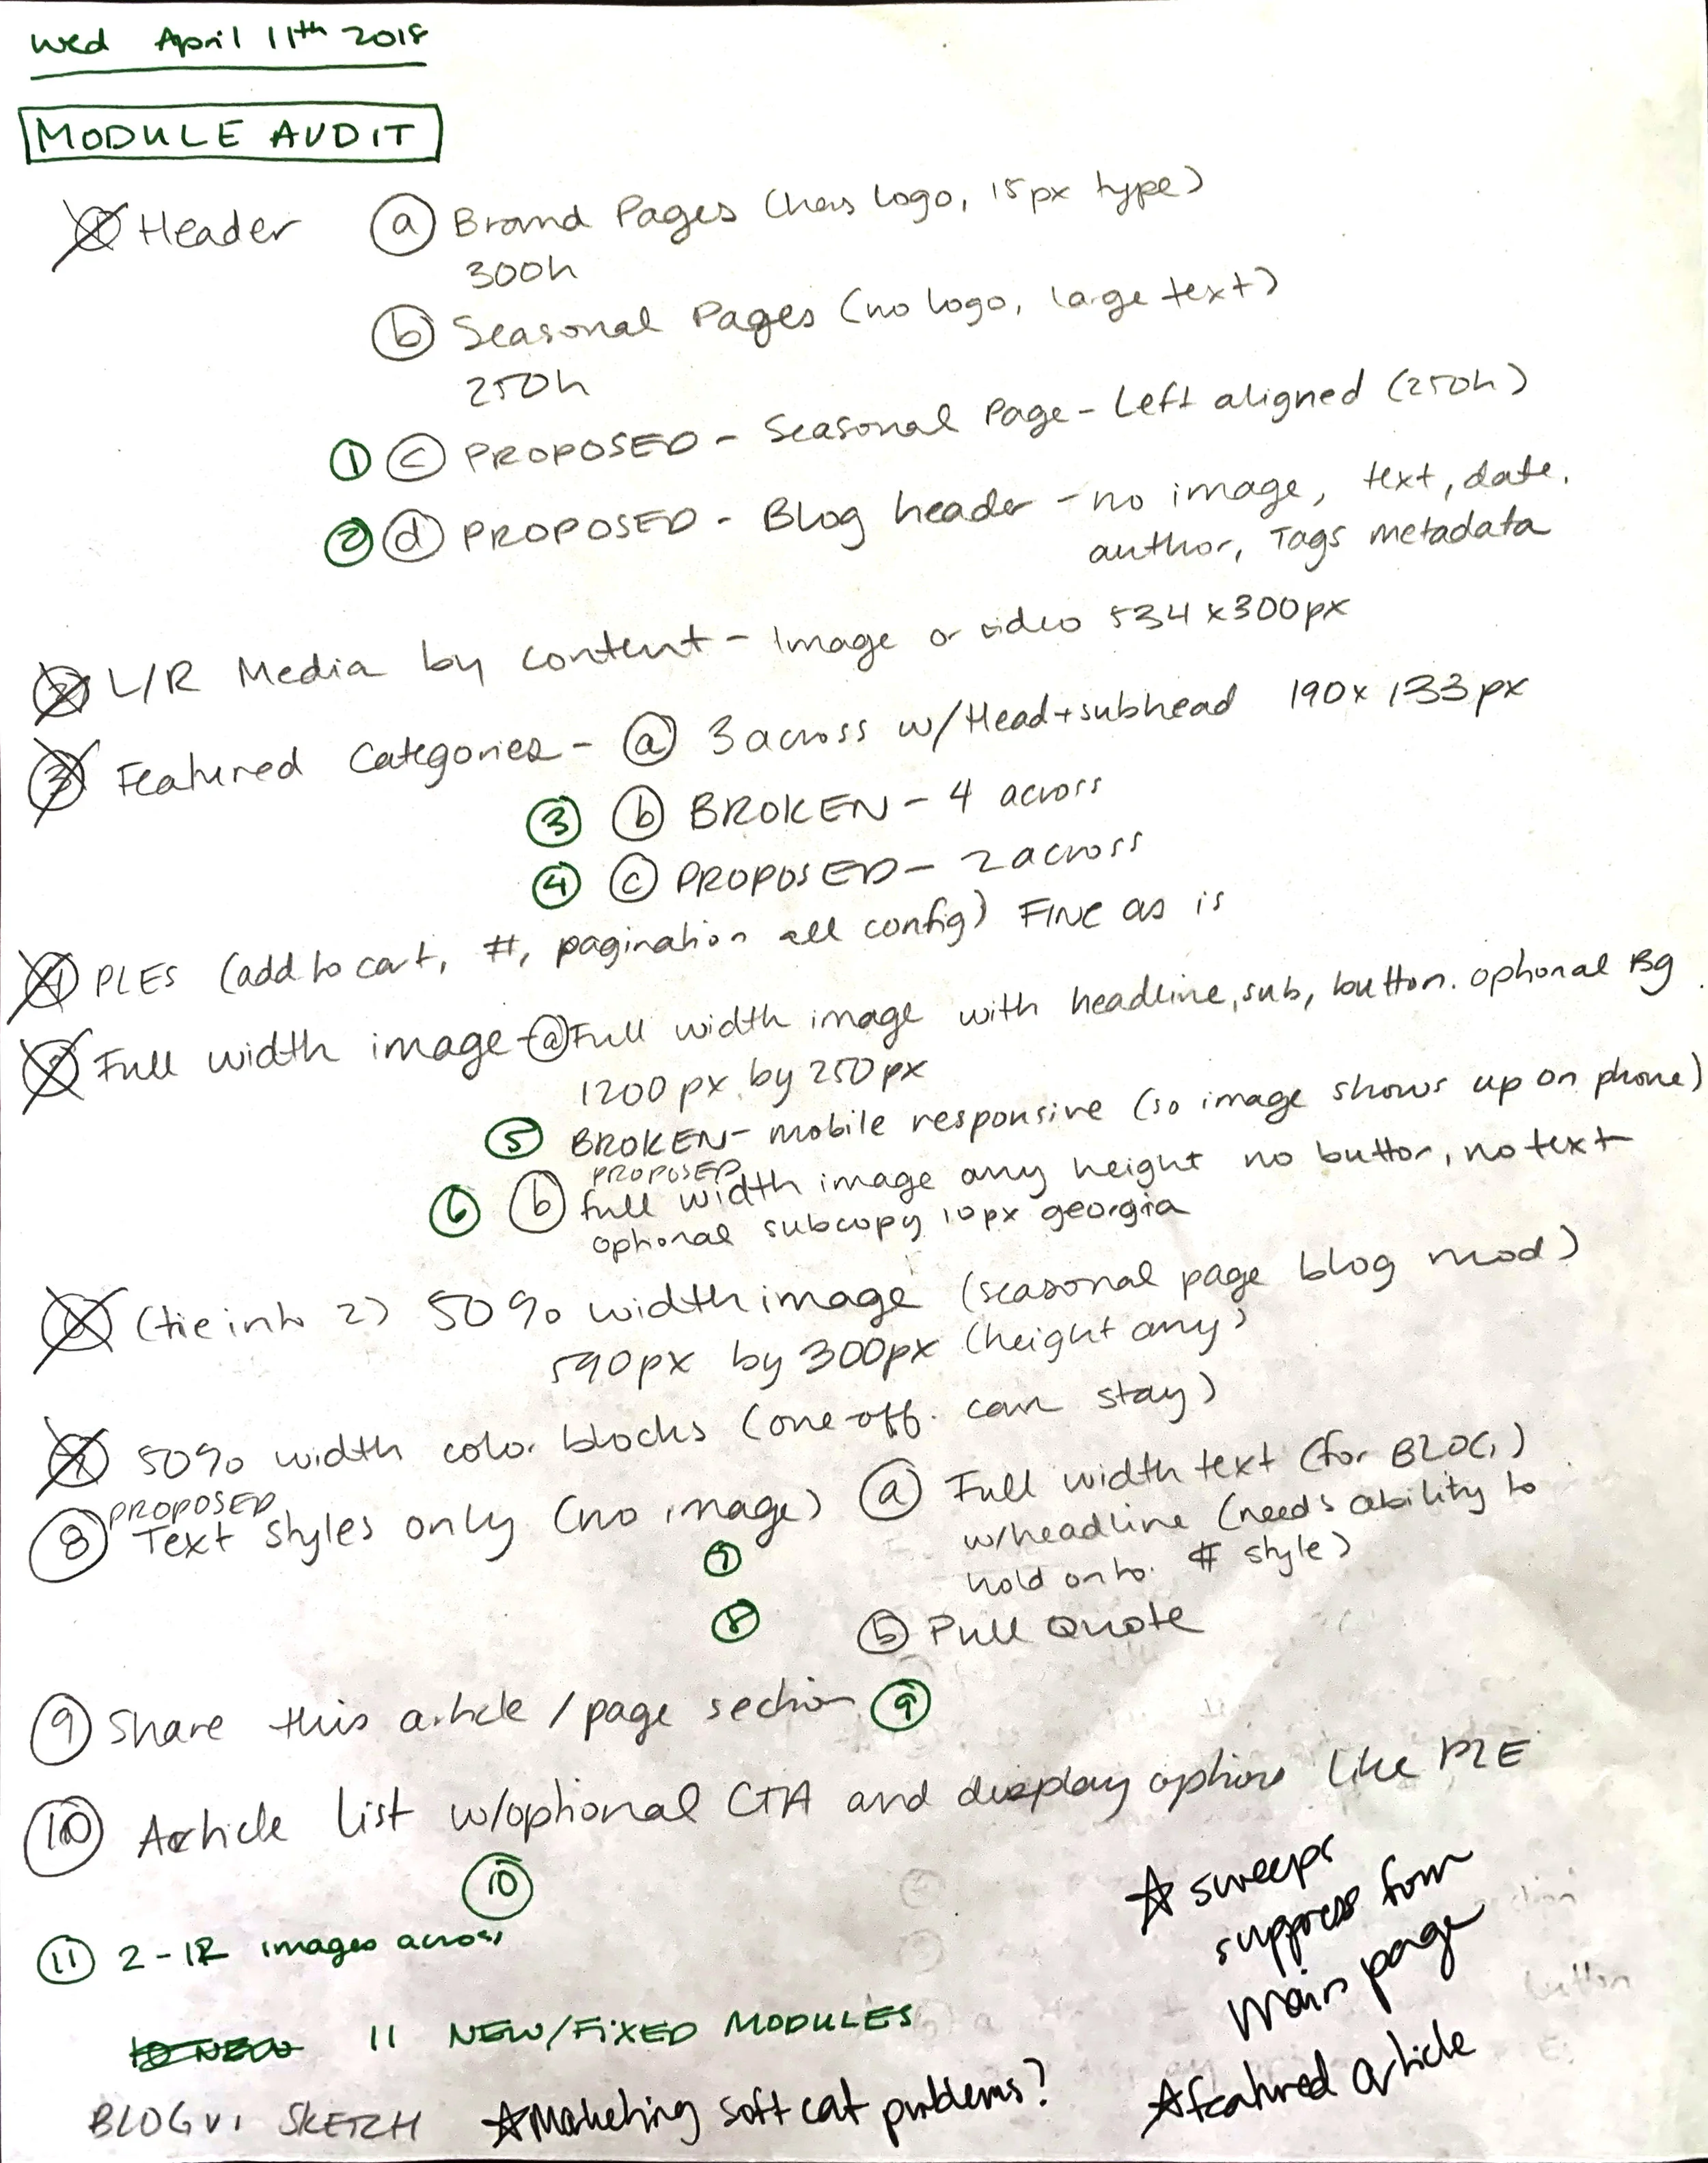 Wed April 11th 2018
MODULE AUDIT
1 Header a Brand Pages (has logo, 15px type)
300h
b Seasonal Pages (no logo, large text)
250h
1 c PROPOSED - Seasonal Page - Left aligned (250h)
2 d PROPOSED - Blog header - no image, text, date,
author, Tags metadata
2 L/R Media by content - Image or video 534 x 300px
3 Featured Categories - a 3 across w/Head+subhead 190 x 133px
3 b BROKEN - 4 across
4 c PROPOSED - 2 across
4 PLES (add to cart, #, pagination all config) FINE as is
5 Full width image - a Full width image with headline, sub, button. optional Bg.
1200px by 250px
5 BROKEN - mobile responsive (so image shows up on phone)
PROPOSED
6 b full width image any height no button, no text
optional subcopy 10px georgia
6 (tie into 2) 50% width image (seasonal page blog mod)
590px by 300px (height any)
7 50% width color blocks (one-off. can stay)
PROPOSED
8 Text styles only (no image) a Full width text (for BLOG)
w/headline (needs ability to
7 hold onto # style)
8 b Pull Quote
9 Share this article / page section 9
10 Article List w/optional CTA and display options like PLE
10
11 2 - IR images across
11 NEW/FIXED MODULES
BLOG V1 SKETCH
☆ Marketing soft cat problems?
☆ sweeps
suppress from
main page
☆ featured article